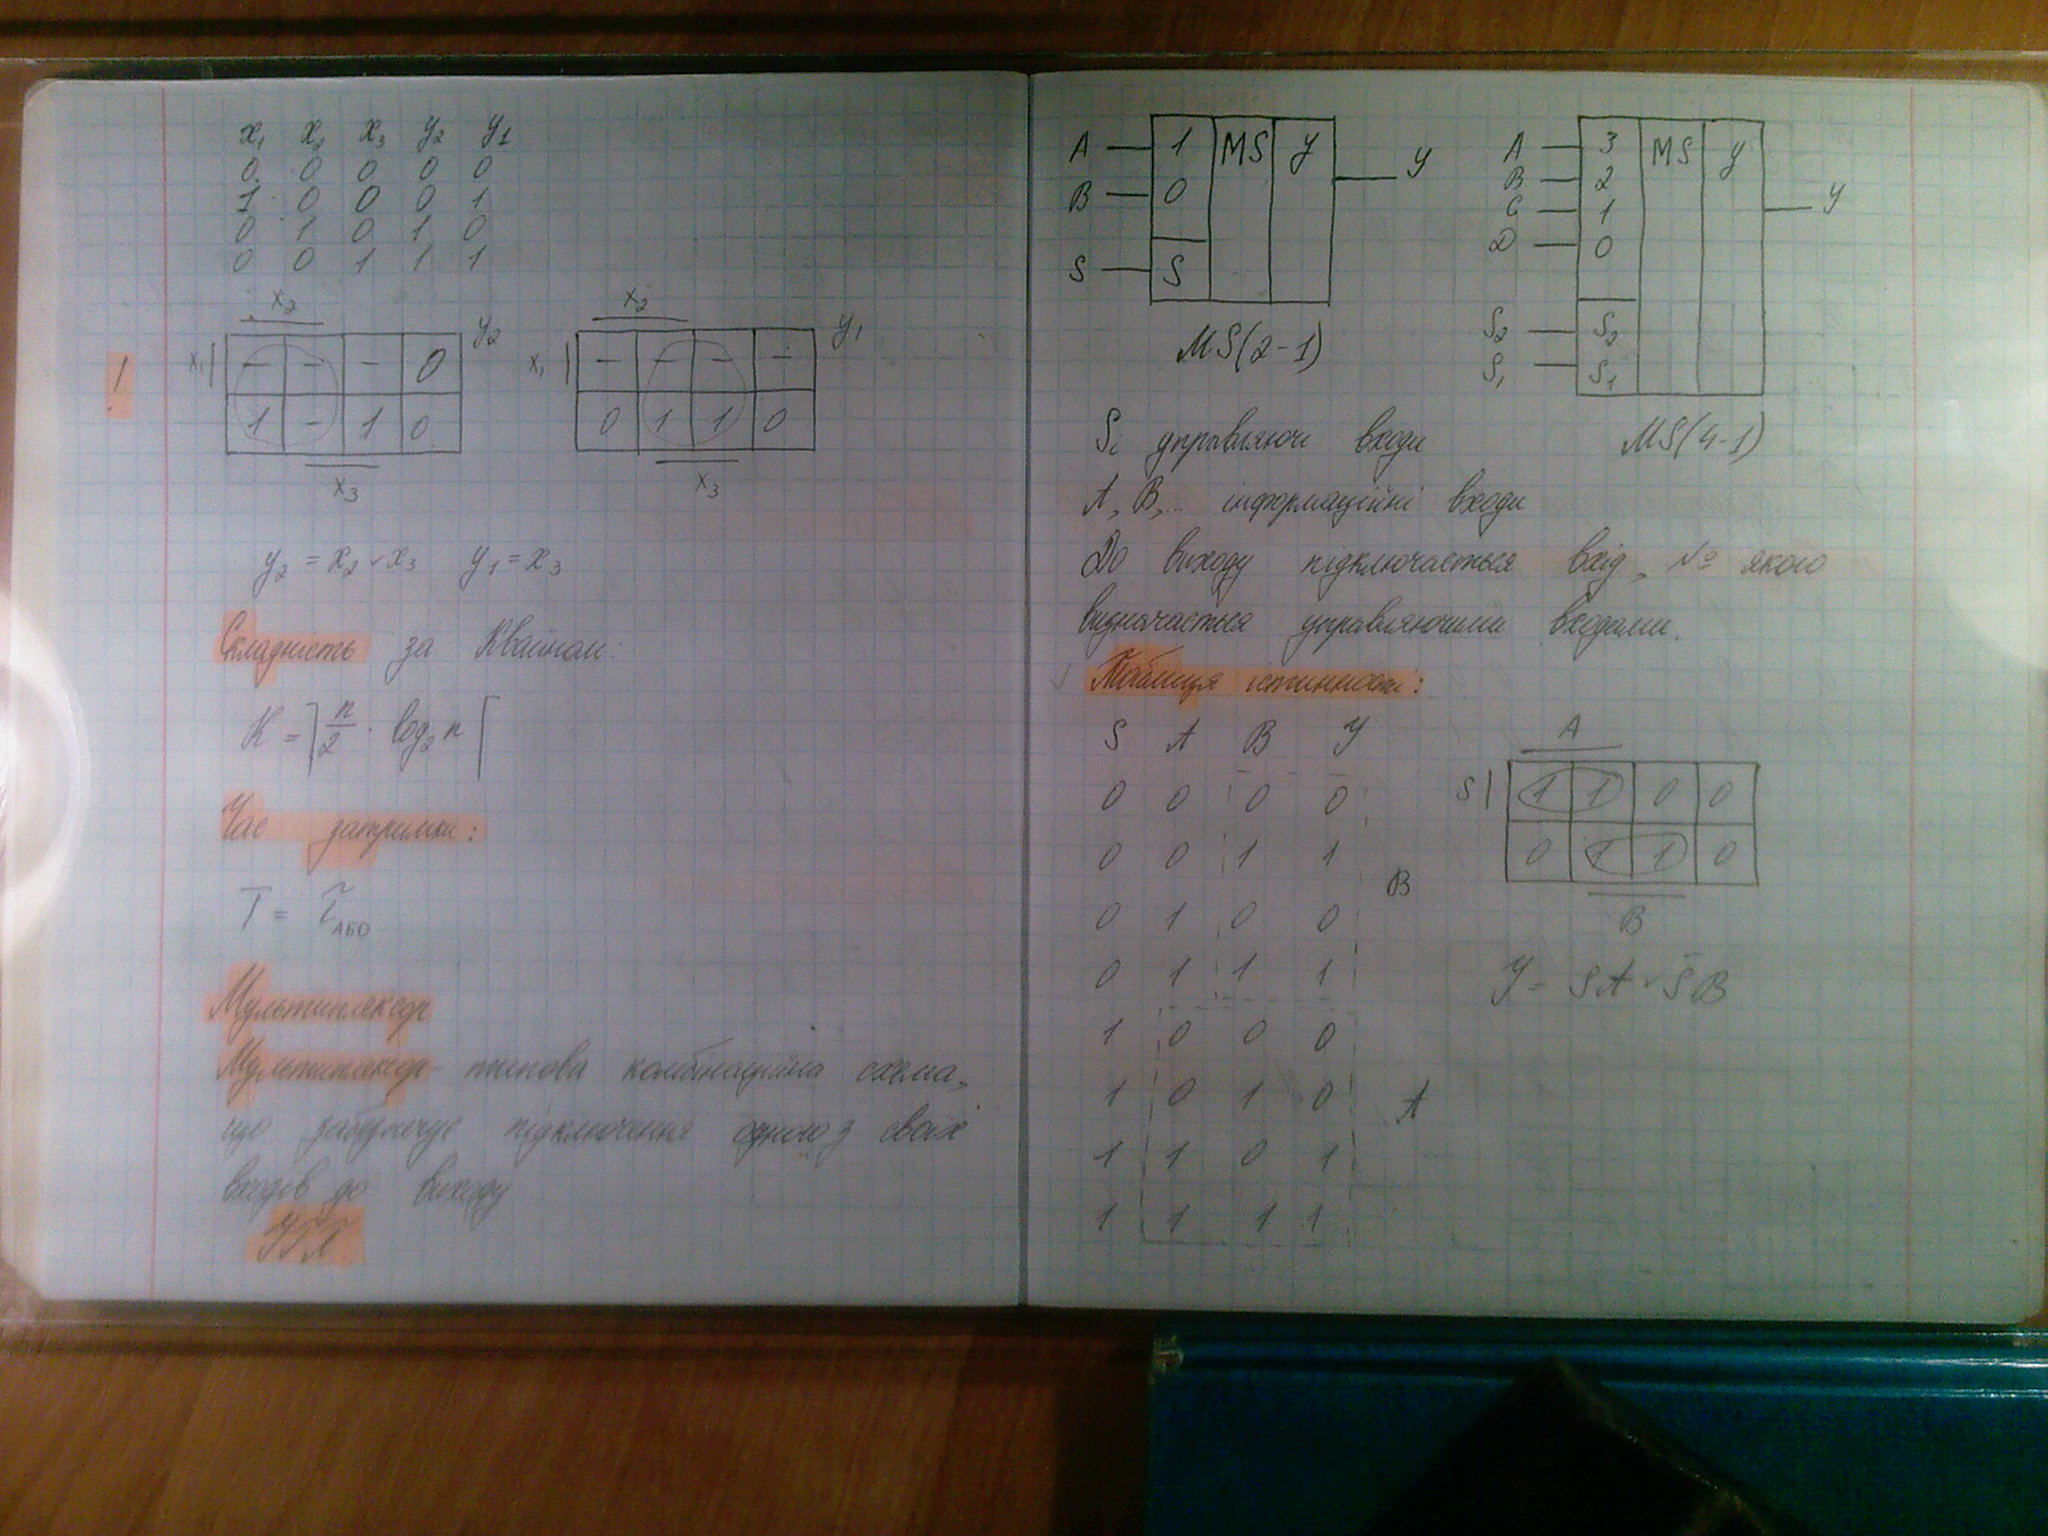 x₁ x₂ x₃ y₂ y₁
0 0 0 0 0
1 0 0 0 1
0 1 0 1 0
0 0 1 1 1
x₂ y₂
x₁ - - - 0
1 - 1 0
x₃
x₂ y₁
x₁ - - - -
0 1 1 0
x₃
!
y₂ = x₂ ∨ x₃ y₁ = x₃
Складність за Квайном:
K = ⌉n/2 · log₂ n⌈
Час затримки:
T = τ АБО
Мультиплексор
Мультиплексор - типова комбінаційна схема,
що забезпечує підключення одного з своїх
входів до виходу
УГП
A 1 MS Y y
B 0
S S
MS(2-1)
A 3 MS Y y
B 2
C 1
D 0
S₂ S₂
S₁ S₁
MS(4-1)
Sᵢ управляючі входи
A, B,... інформаційні входи
До виходу підключається вхід, № якого
визначається управляючими входами.
Таблиця істинності:
S A B Y
0 0 0 0
0 0 1 1
0 1 0 0
0 1 1 1
B
1 0 0 0
1 0 1 0
1 1 0 1
1 1 1 1
A
A
S 1 1 0 0
0 1 1 0
B
Y = SA ∨ S̄B